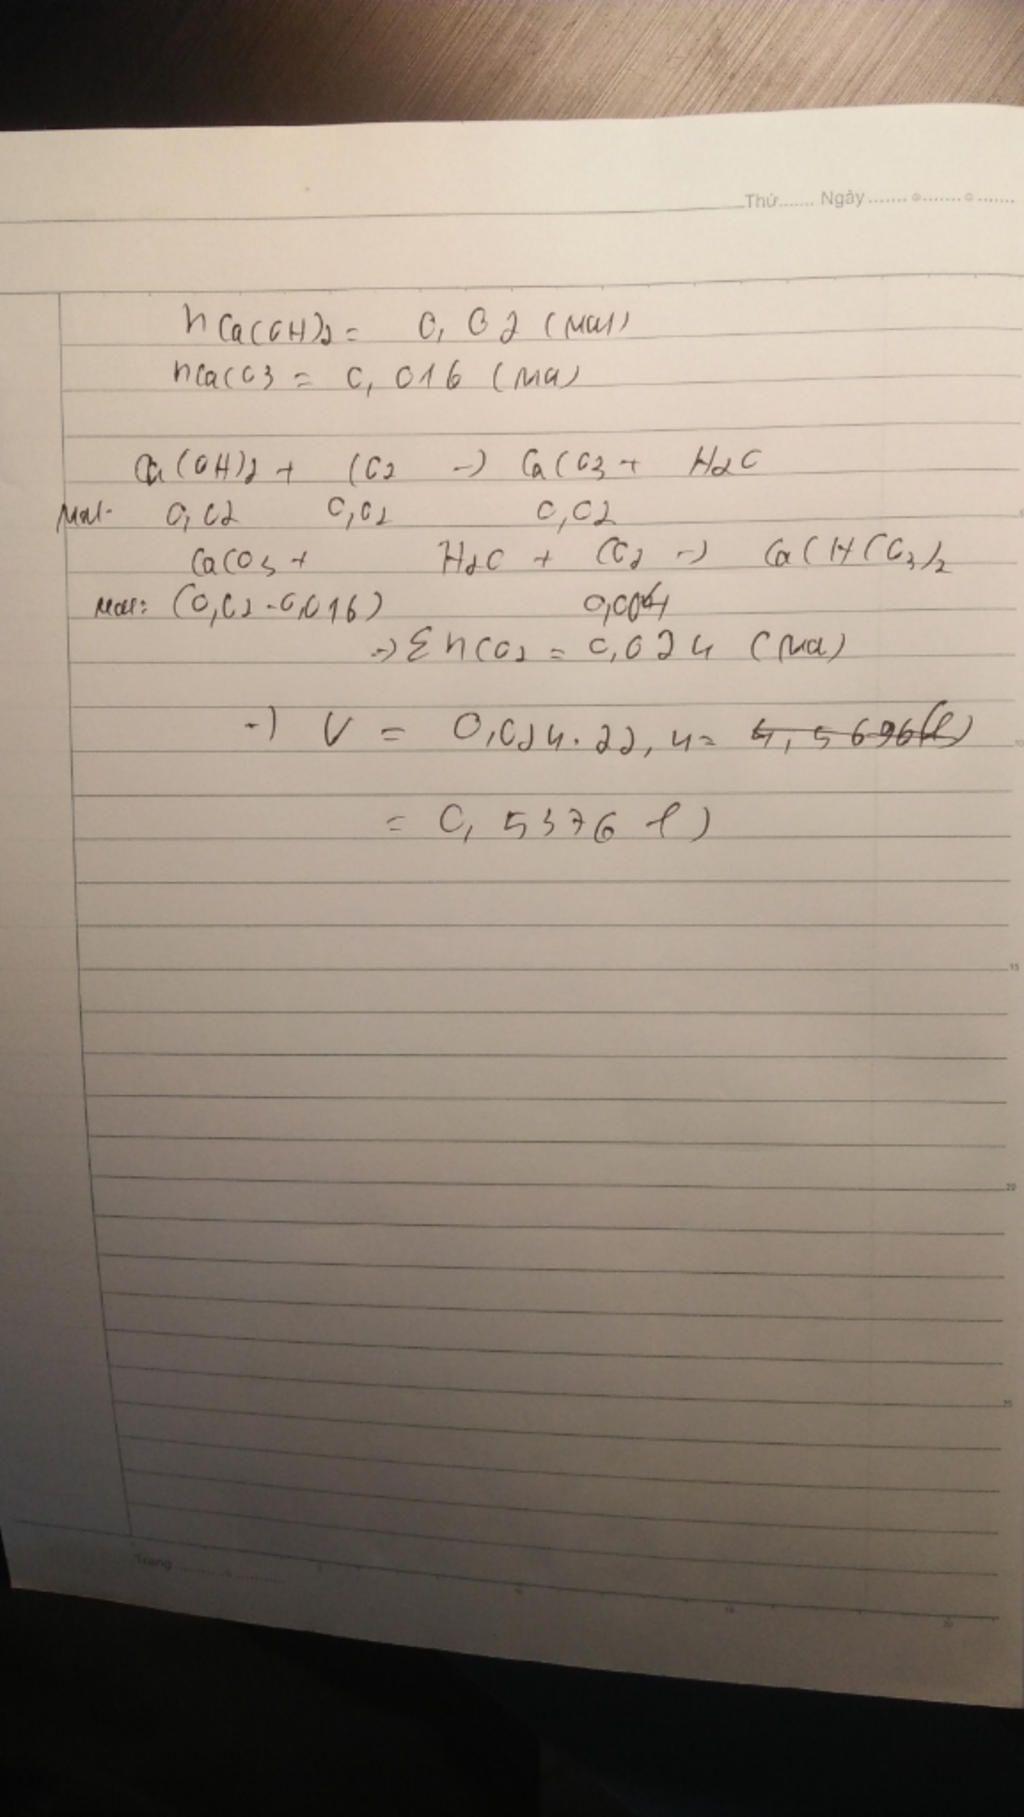 Thứ....... Ngày
nCa(OH)2 = 0,02 (mol)
nCaCO3 = 0,016 (mol)
Ca(OH)2 + CO2 -> CaCO3 + H2O
mol: 0,02 0,02 0,02
CaCO3 + H2O + CO2 -> Ca(HCO3)2
mol: (0,02-0,016) 0,004
-> ΣnCO2 = 0,024 (mol)
-> V = 0,024.22,4 = 4,5696(l)
= 0,5376 l)
15
20
25
Trang